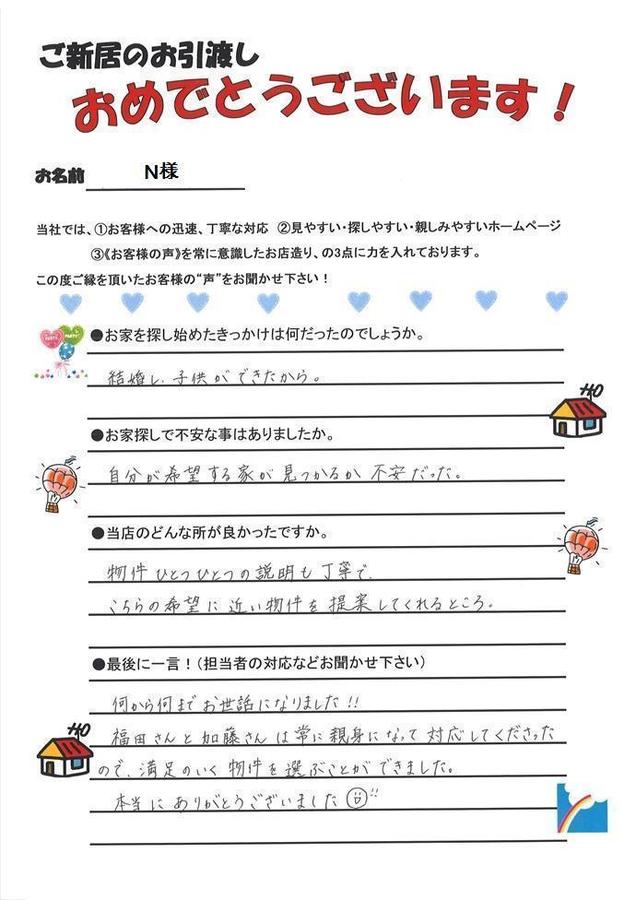 ご新居のお引渡し
おめでとうございます!
お名前 N様
当社では、①お客様への迅速、丁寧な対応 ②見やすい・探しやすい・親しみやすいホームページ
③《お客様の声》を常に意識したお店造り、の3点に力を入れております。
この度ご縁を頂いたお客様の“声”をお聞かせ下さい!
●お家を探し始めたきっかけは何だったのでしょうか。
結婚し、子供ができたから。
●お家探しで不安な事はありましたか。
自分が希望する家が見つかるか不安だった。
●当店のどんな所が良かったですか。
物件ひとつひとつの説明も丁寧で、
こちらの希望に近い物件を提案してくれるところ。
●最後に一言!(担当者の対応などお聞かせ下さい)
何から何までお世話になりました!!
福田さんと加藤さんは常に親身になって対応してくださった
ので、満足のいく物件を選ぶことができました。
本当にありがとうございました!!